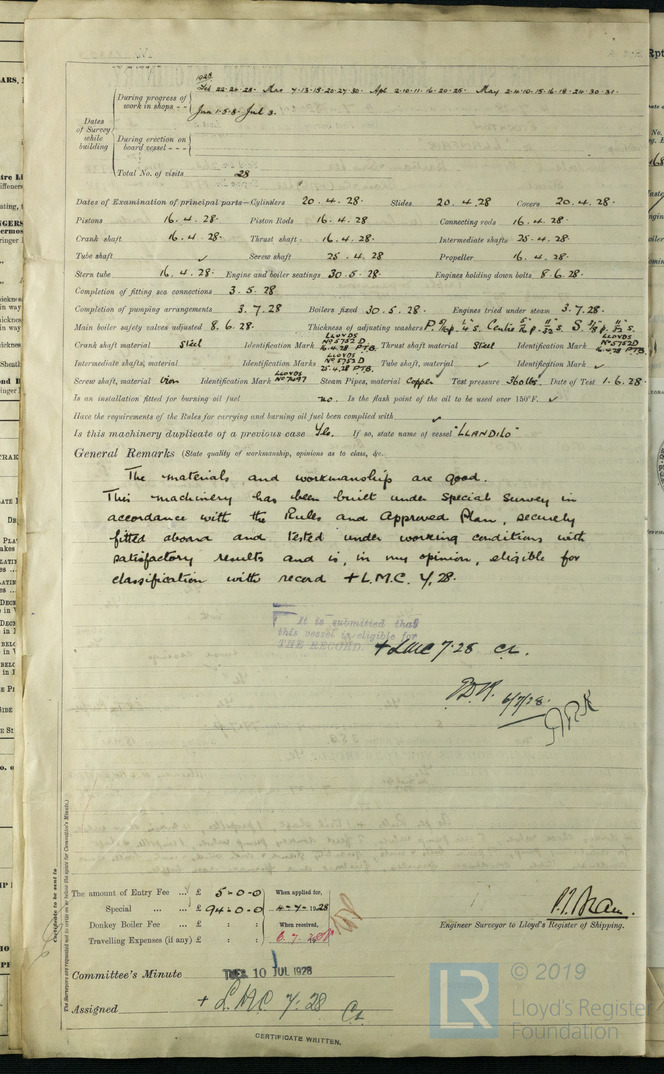 1928
Feb 22.24.28. Mar 7.13.15.20.27.30. Apl 2.10.11.16.20.25. May 2.4.10.15.16.18.24.30.31.
During progress of work in shops - -
Jun 1.5.8. Jul 3.
Dates of Survey while building
During erection on board vessel - - -
Total No. of visits 28
Dates of Examination of principal parts—Cylinders 20.4.28. Slides 20.4.28 Covers 20.4.28.
Pistons 16.4.28. Piston Rods 16.4.28. Connecting rods 16.4.28.
Crank shaft 16.4.28. Thrust shaft 16.4.28. Intermediate shafts 25.4.28.
Tube shaft ✓ Screw shaft 25.4.28 Propeller 16.4.28.
Stern tube 16.4.28. Engine and boiler seatings 30.5.28. Engines holding down bolts 8.6.28.
Completion of fitting sea connections 3.5.28.
Completion of pumping arrangements 3.7.28 Boilers fixed 30.5.28. Engines tried under steam 3.7.28.
Main boiler safety valves adjusted 8.6.28. Thickness of adjusting washers
Crank shaft material Steel Identification Mark LLOYDS No 5752 D 16.4.28 P.T.B. Thrust shaft material Steel Identification Mark LLOYDS No 5752 D 16.4.28 P.T.B.
Intermediate shafts, material Identification Marks LLOYDS No 5753 D 25.4.28 P.T.B. Tube shaft, material ✓ Identification Mark ✓
Screw shaft, material Iron Identification Mark LLOYDS No 7497 Steam Pipes, material Copper Test pressure 360 lbs. Date of Test 1.6.28.
Is an installation fitted for burning oil fuel no. Is the flash point of the oil to be used over 150°F. ✓
Have the requirements of the Rules for carrying and burning oil fuel been complied with ✓
Is this machinery duplicate of a previous case Yes. If so, state name of vessel "LLANDILO"
General Remarks (State quality of workmanship, opinions as to class, &c.
The materials and workmanship are good.
This machinery has been built under Special Survey in
accordance with the Rules and Approved Plan, securely
fitted aboard and tested under working conditions with
satisfactory results and is, in my opinion, eligible for
classification with record + L.M.C. 7,28.
It is submitted that
this vessel is eligible for
THE RECORD. + LMC 7.28 CL.
6/7/28.
The amount of Entry Fee ... £ 5-0-0 When applied for,
Special ... ... £ 94-0-0 4-7-1928
Donkey Boiler Fee ... £ : : When received,
Travelling Expenses (if any) £ : : 6.7.28
Engineer Surveyor to Lloyd's Register of Shipping.
Committee's Minute TUES 10 JUL 1928
Assigned + L.M.C. 7.28 CL
CERTIFICATE WRITTEN.
Certificate to be sent to
The Surveyors are requested not to write on or below the space for Committee's Minute.
© 2019
LR
Lloyd's Register
Foundation